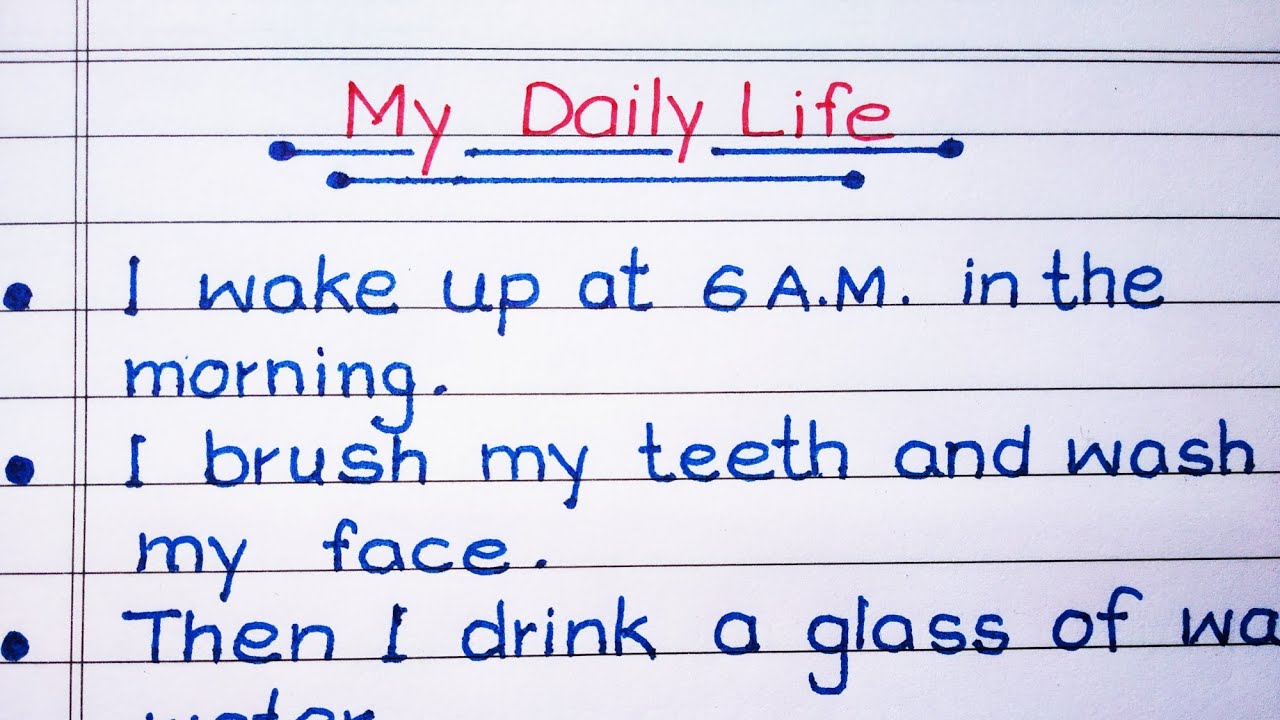 My Daily Life
I wake up at 6 A.M. in the
morning.
I brush my teeth and wash
my face.
Then I drink a glass of wa
water